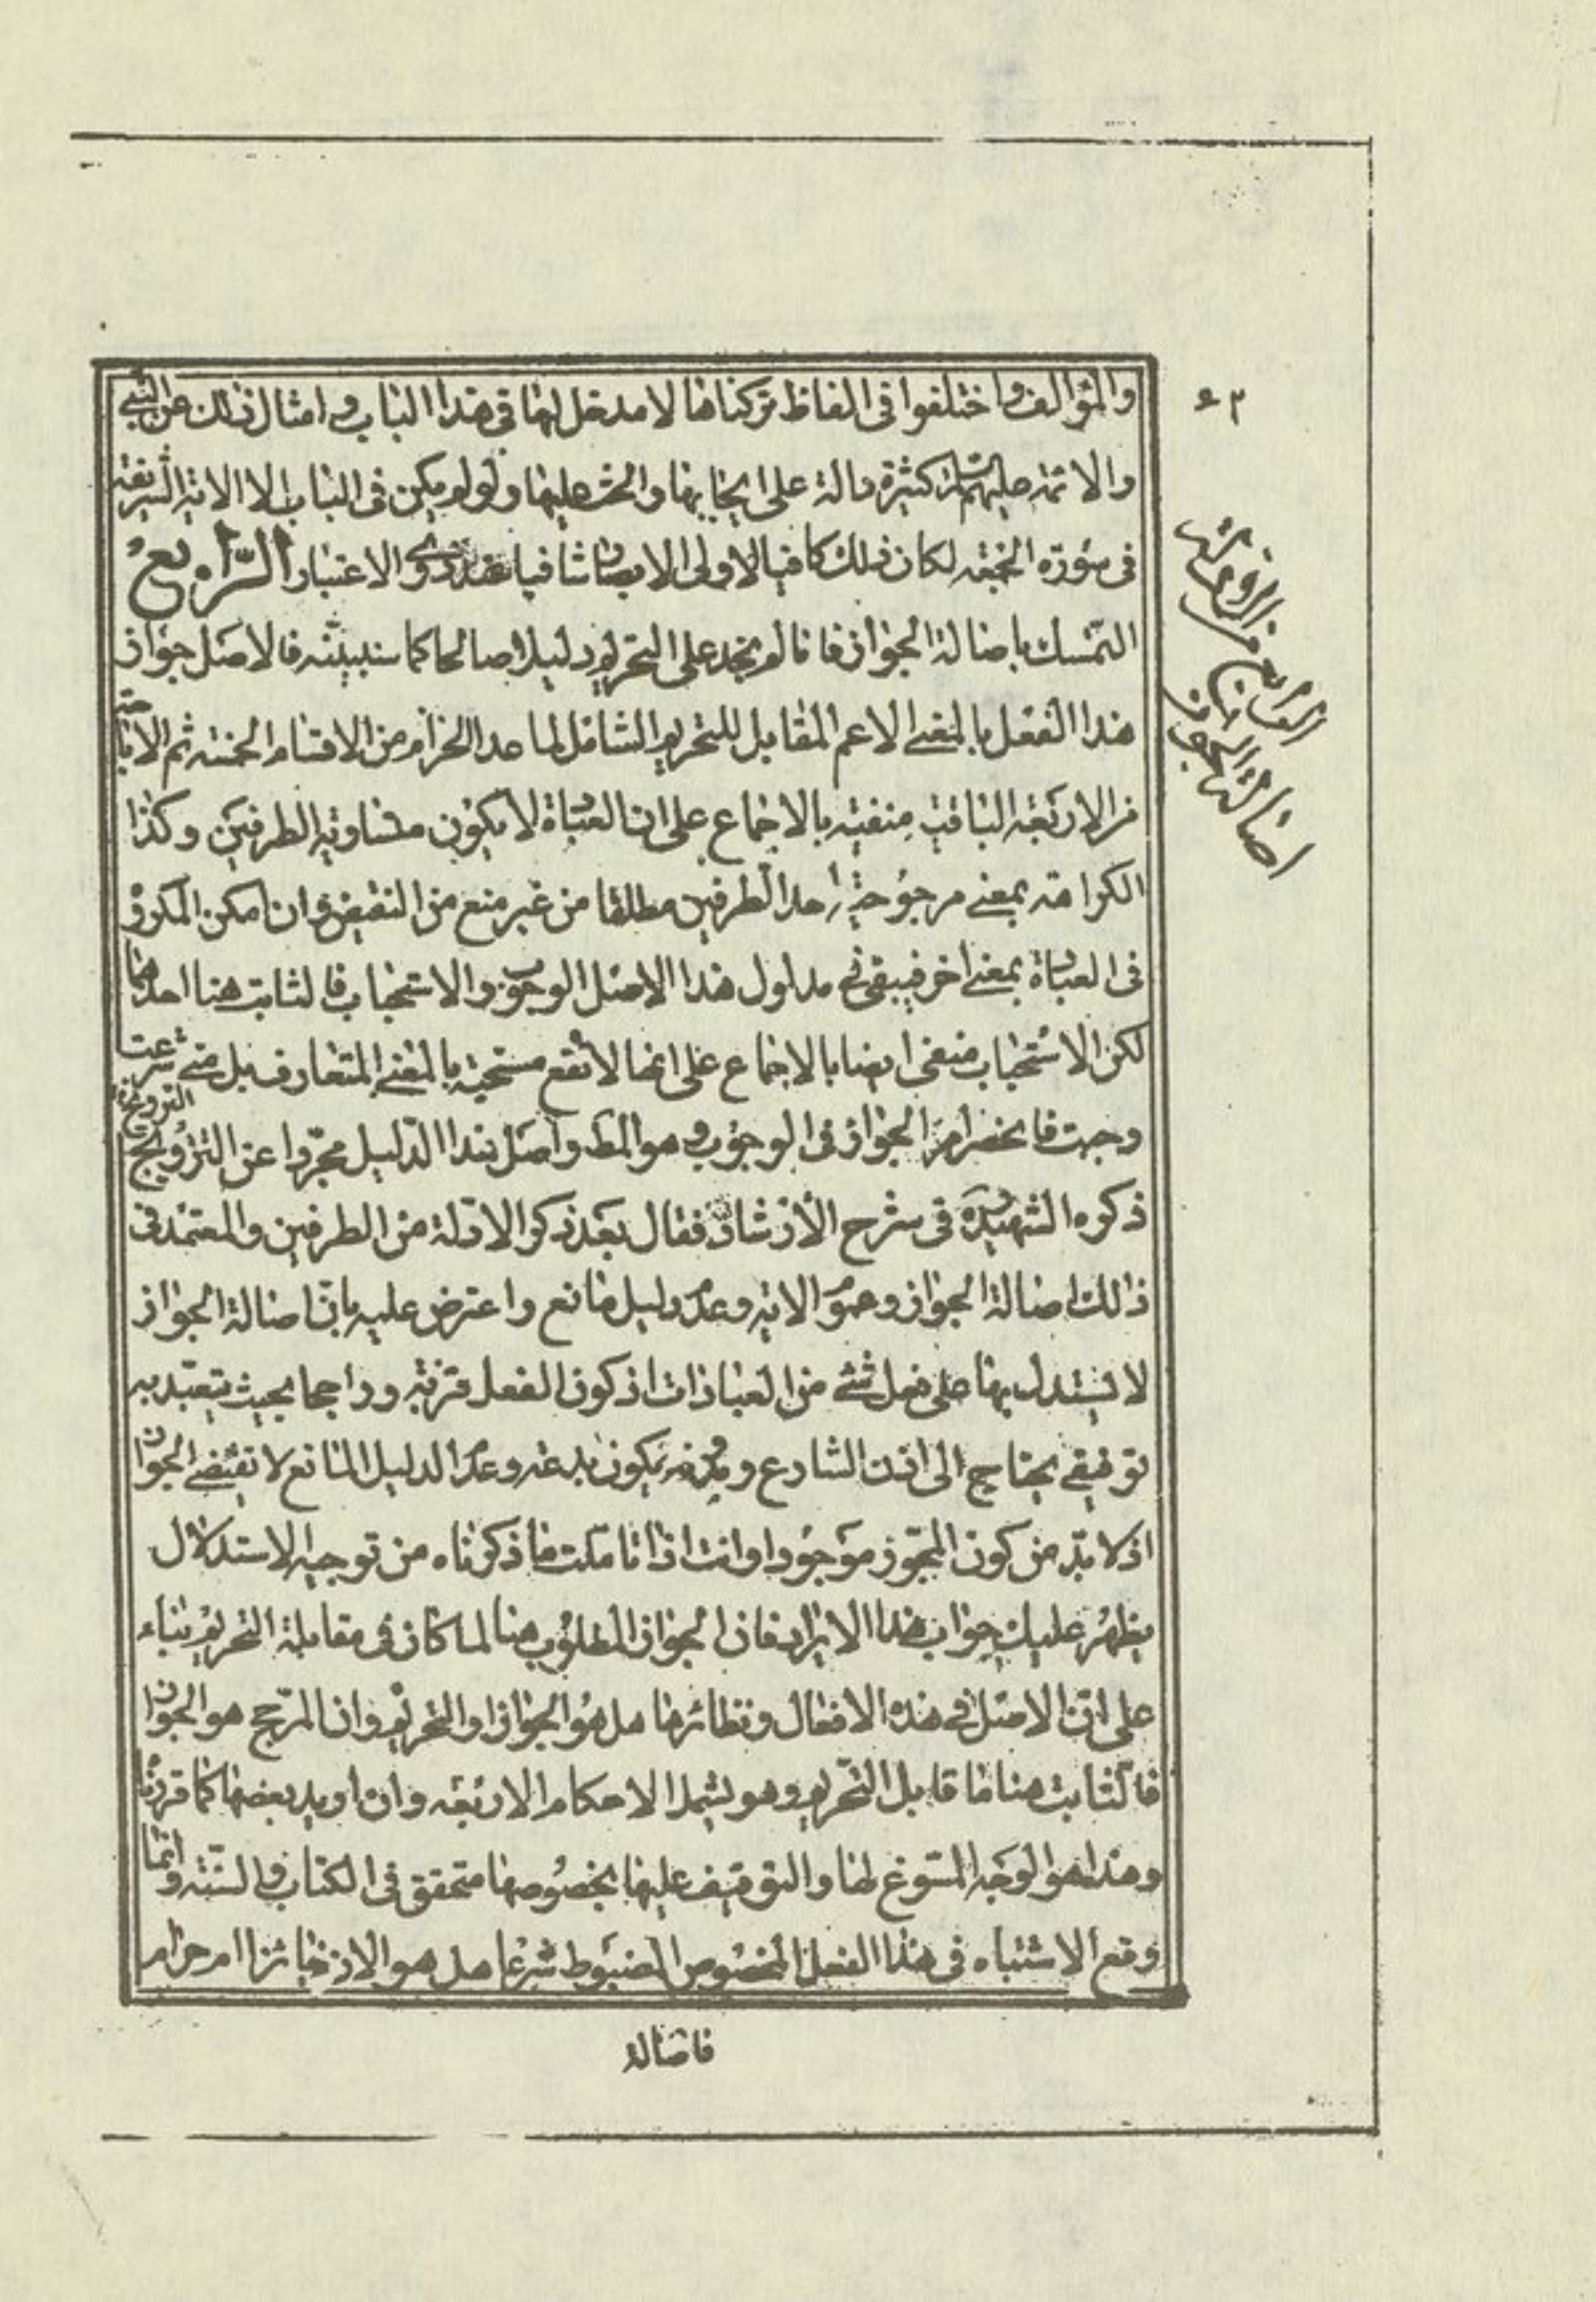 والمؤالف واختلفوا فی الفاظ ترکناها لا مدخل لها فی هذا الباب و امثال ذلك عن النبی
والائمه علیهم السلام کثیرة دالة علی ایجابها والحث علیها ولو لم یکن فی الباب الا الایة الشریفة
فی سورة الجمعه لکان ذلك کافیا لاولی الابصار شافیا عند ذوی الاعتبار الرابع
التمسك باصالة الجواز فانا لم نجد علی التحریم دلیلا صالحا کما سنبینه فالاصل جواز
هذا الفعل بالمعنی الاعم المقابل للتحریم الشامل لما عدا الحرام من الاقسام الخمسه ثم الاباحة
من الاربعه الباقیة منفیه بالاجماع علی ان العبادة لا یکون متساویة الطرفین وکذا
الکراهه بمعنی مرجوحیة احد الطرفین مطلقا من غیر منع من النقیض وان امکن المکروه
فی العبادة بمعنی اخر فیبقی فی مدلول هذا الاصل الوجوب والاستحباب فالثابت هنا احدهما
لکن الاستحباب منفی ایضا بالاجماع علی انها لا تقع مستحبة بالمعنی المتعارف بل متی شرعت
وجبت فانحصر امر الجواز فی الوجوب و هو المط واصل هذا الدلیل مجردا عن التزویج
ذکره الشهید ره فی شرح الارشاد فقال بعد ذکر الادلة من الطرفین والمعتمد فی
ذالك اصالة الجواز وعموم الایة وعدم دلیل مانع واعترض علیه بان اصالة الجواز
لا یستدل بها علی فعل شئ من العبادات اذ کون الفعل قربة وراجحا بحیث یتعبد به
توقیفی یحتاج الی اذن الشارع وبدونه یکون بدعة وعدم الدلیل المانع لا تقتضی الجواز
اذ لا بد من کون المجوز موجودا وانت اذا تاملت ما ذکرناه من توجیه الاستدلال
یظهر علیك جواب هذا الایراد فان الجواز المطلوب هنا لما کان فی مقابلة التحریم بناء
علی ان الاصل فی هذه الافعال ونظائرها هل هو الجواز او التحریم وان المرجح هو الجواز
فالثابت هنا ما قابل التحریم وهو یشمل الاحکام الاربعه وان ارید بعضها کما قررنا
وهذا هو الوجه المسوغ لها والتوقیف علیها بخصوصها متحقق فی الکتاب والسنة وانما
وقع الاشتباه فی هذا الفعل المخصوص المضبوط شرعا هل هو الان جائزا ام حرام
فاصالة
الرابع من
اصالة الجواز